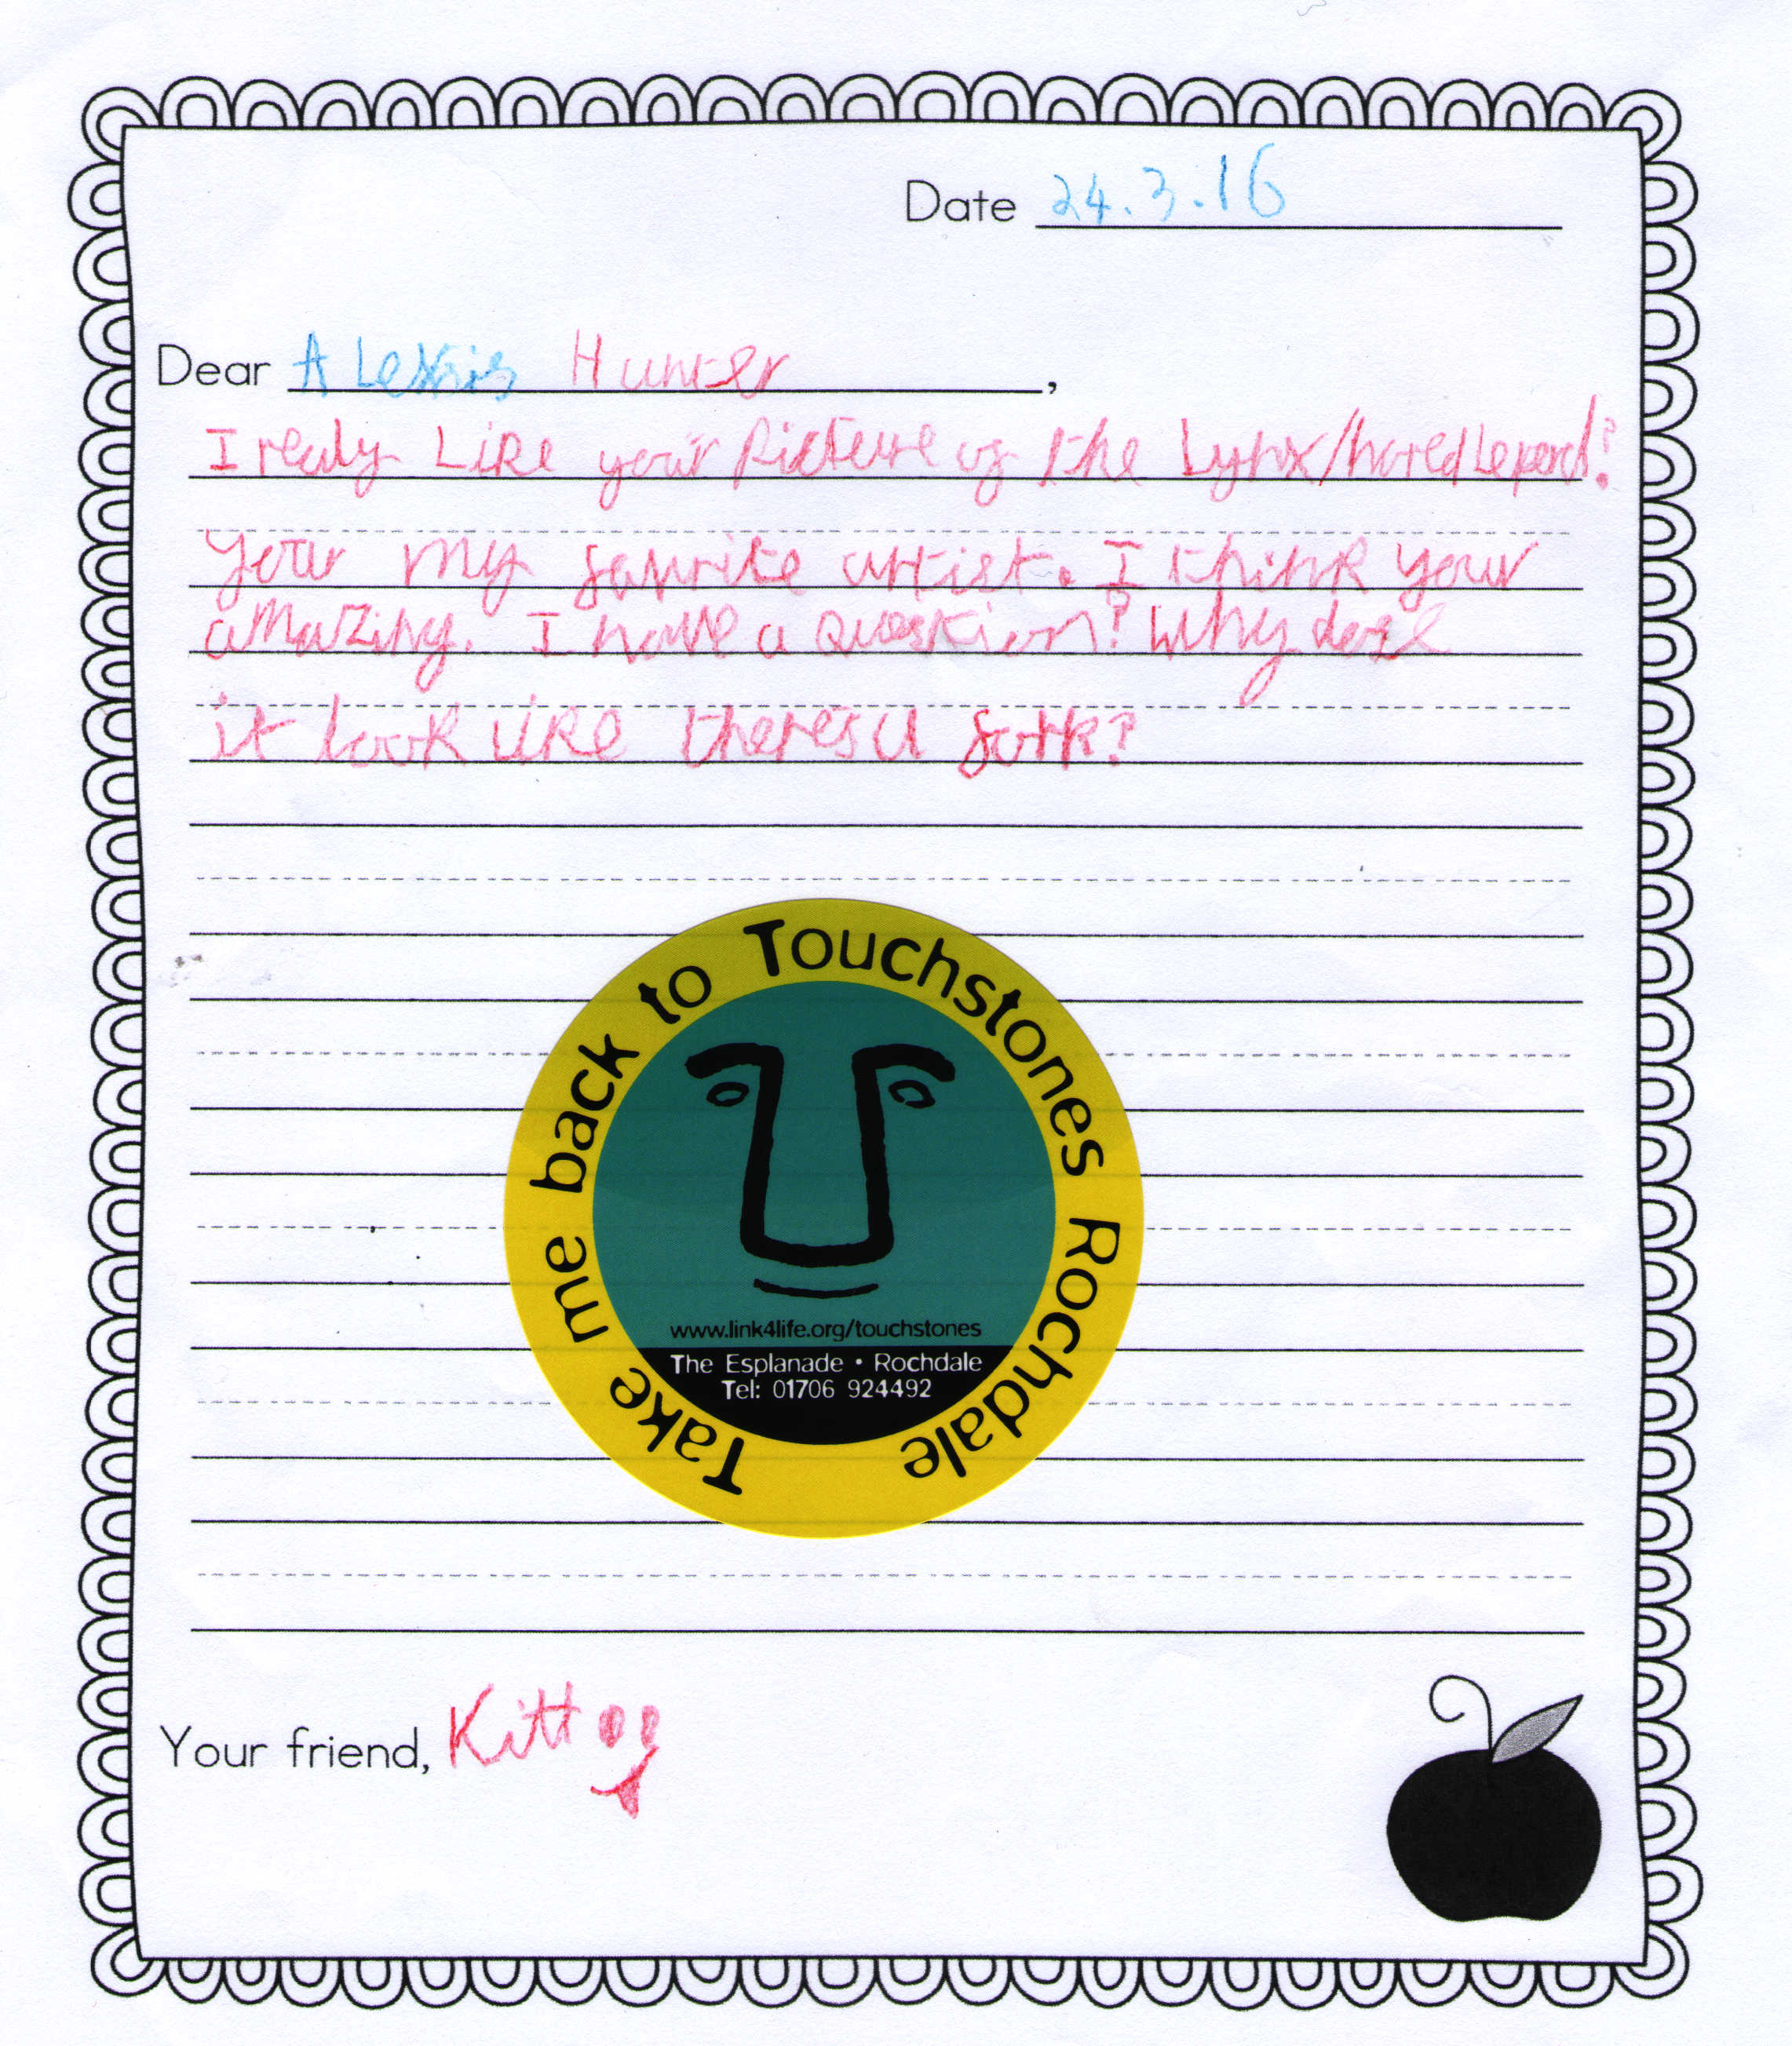 Date 24.3.16
Dear ALexis Hunter,
I realy Like your Picture of the Lynx/hored Leperd!?
your my favrite artist. I think your
amazing. I have a Question? Why does
it look like theres a fork?
Take me back to Touchstones Rochdale
www.link4life.org/touchstones
The Esplanade • Rochdale
Tel: 01706 924492
Your friend, Kitt